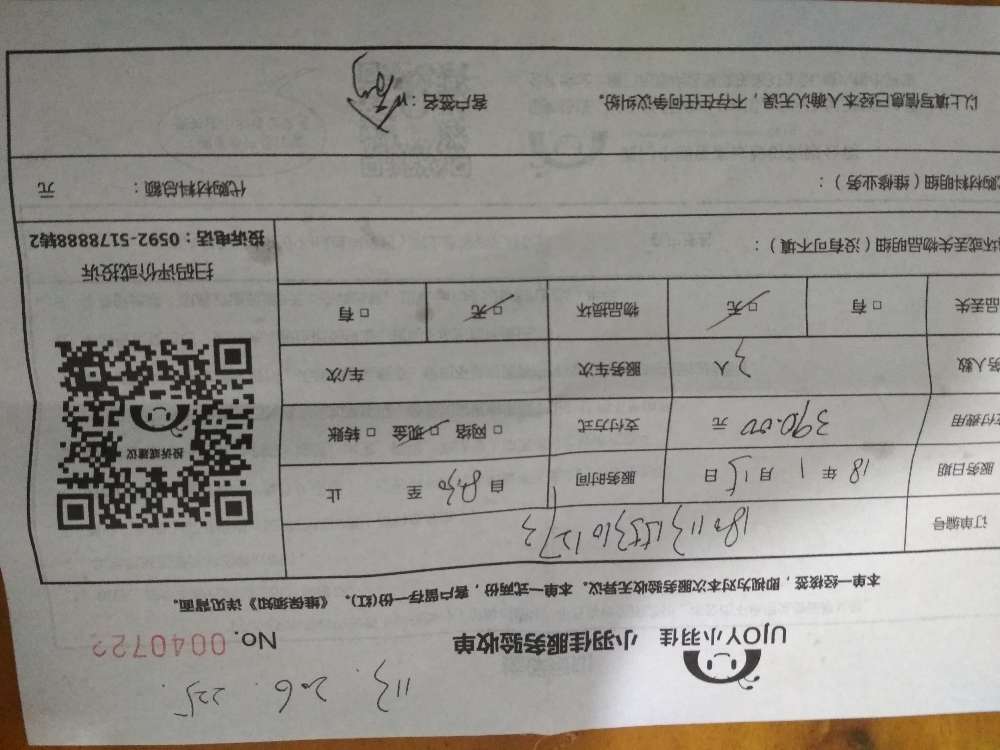 113. 206. 225.
UJOY小羽佳 小羽佳服务验收单 No. 0040722
本单一经接签，即视为对本次服务验收无异议。本单一式两份，客户留存一份(红)。《维保须知》详见背面。
订单编号
服务日期 18年1月15日 服务时间 自8:30至 止
支付费用 390.00元 支付方式 □网络 □现金 □转账
务人数 3人 服务车次 车/次
品丢失 □有 □无 物品损坏 □无 □有
投诉或建议
扫码评价或投诉
投诉电话：0592-5178888转2
坏或丢失物品明细（没有可不填）：
代购材料明细（维修业务）： 代购材料总额： 元
以上填写信息已经本人确认无误，不存在任何争议纠纷。 客户签名：